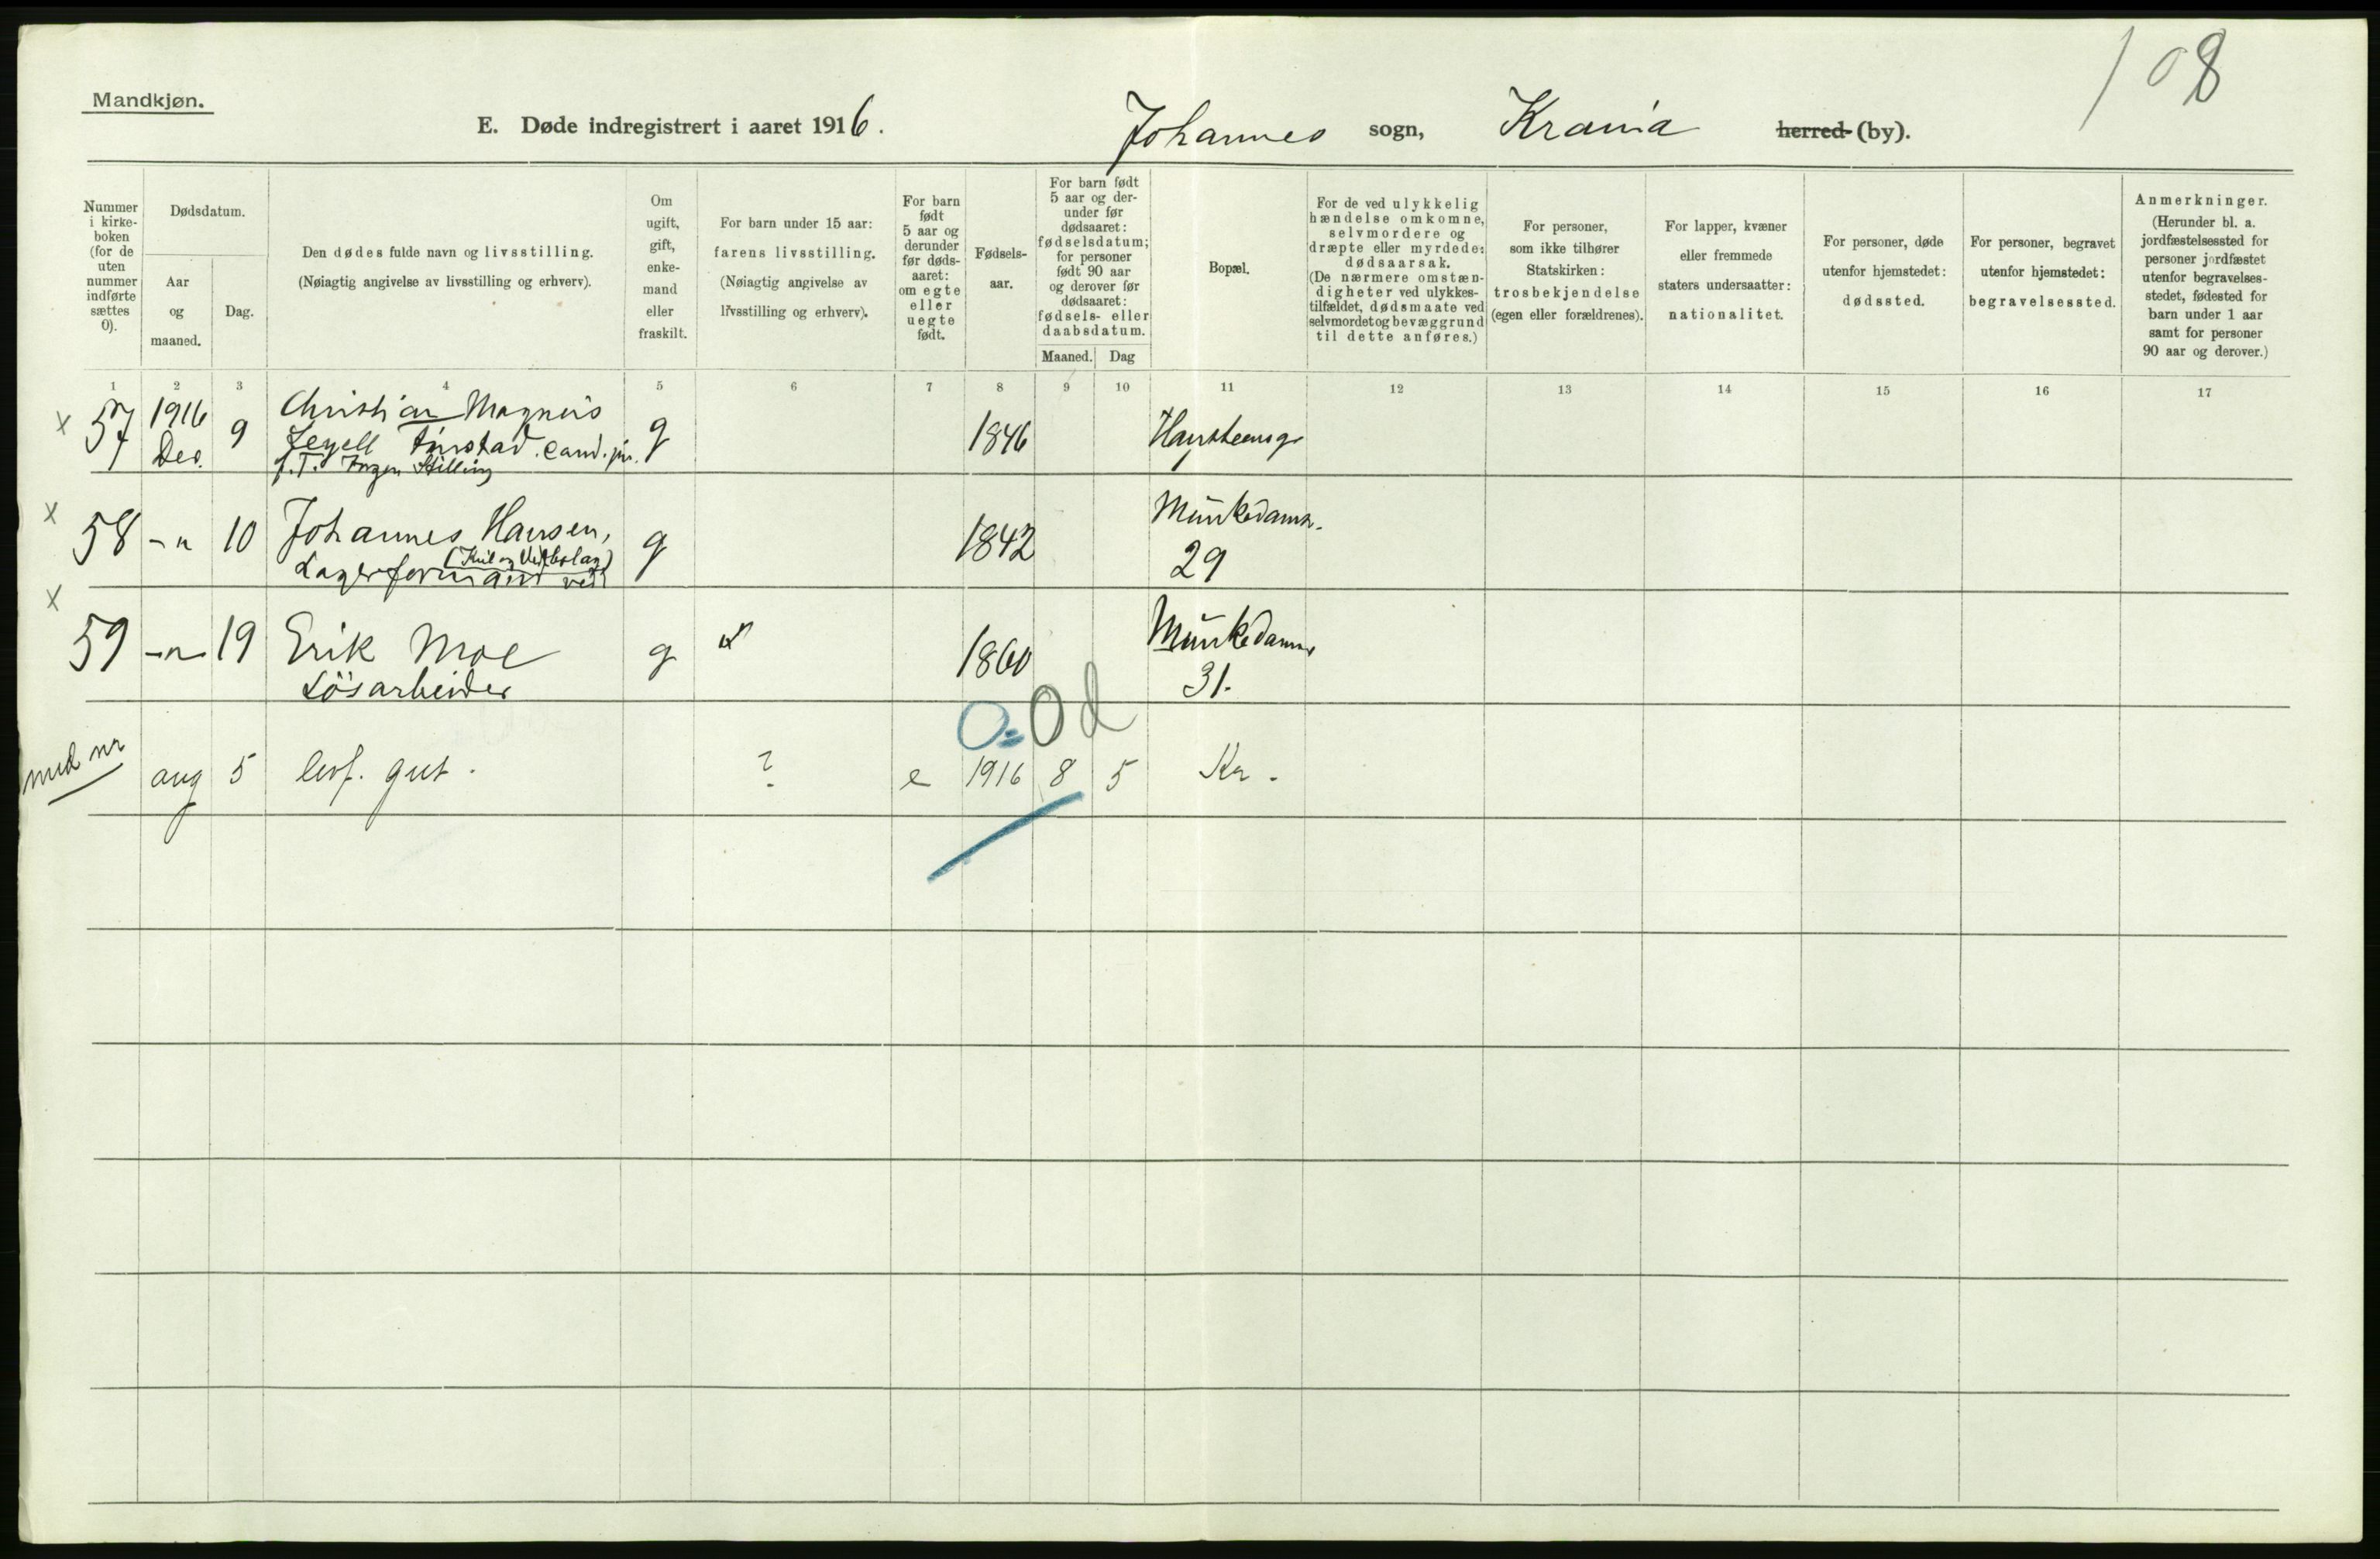 108
Mandkjøn.
E. Døde indregistrert i aaret 1916. Johannes sogn, Krania herred (by).
Nummer i kirke-boken (for de uten nummer indførte sættes 0).
Dødsdatum.
Aar og maaned.
Dag.
Den dødes fulde navn og livsstilling.
(Nøiagtig angivelse av livsstilling og erhverv).
Om ugift, gift, enke-mand eller fraskilt.
For barn under 15 aar: farens livsstilling.
(Nøiagtig angivelse av livsstilling og erhverv).
For barn født 5 aar og derunder før døds-aaret: om egte eller uegte født.
Fødsels-aar.
For barn født 5 aar og der-under før dødsaaret: fødselsdatum; for personer født 90 aar og derover før dødsaaret: fødsels- eller daabsdatum.
Maaned. Dag
Bopæl.
For de ved ulykkelig hændelse omkomne, selvmordere og dræpte eller myrdede: dødsaarsak.
(De nærmere omstæn-digheter ved ulykkes-tilfældet, dødsmaate ved selvmordet og bevæggrund til dette anføres.)
For personer, som ikke tilhører Statskirken: trosbekjendelse (egen eller forældrenes).
For lapper, kvæner eller fremmede staters undersaatter: nationalitet.
For personer, døde utenfor hjemstedet: dødssted.
For personer, begravet utenfor hjemstedet: begravelsessted.
Anmerkninger.
(Herunder bl. a. jordfæstelsessted for personer jordfæstet utenfor begravelses-stedet, fødested for barn under 1 aar samt for personer 90 aar og derover.)
1 2 3 4 5 6 7 8 9 10 11 12 13 14 15 16 17
x 57 1916 Dec. 9 Christian Magnus g 1846
cand. jur.
f. T. Ingen Stilling
x 58 -"- 10 Johannes Hansen, g 1842 Munkedamsv. 29
Lagerformand ved (Kul og Vedbolag)
x 59 -"- 19 Erik Moe g 1860 Munkedamsv 31.
Løsarbeider
0 = 0 d
aug 5 levf. gut. ? e 1916 8 5 Kr.